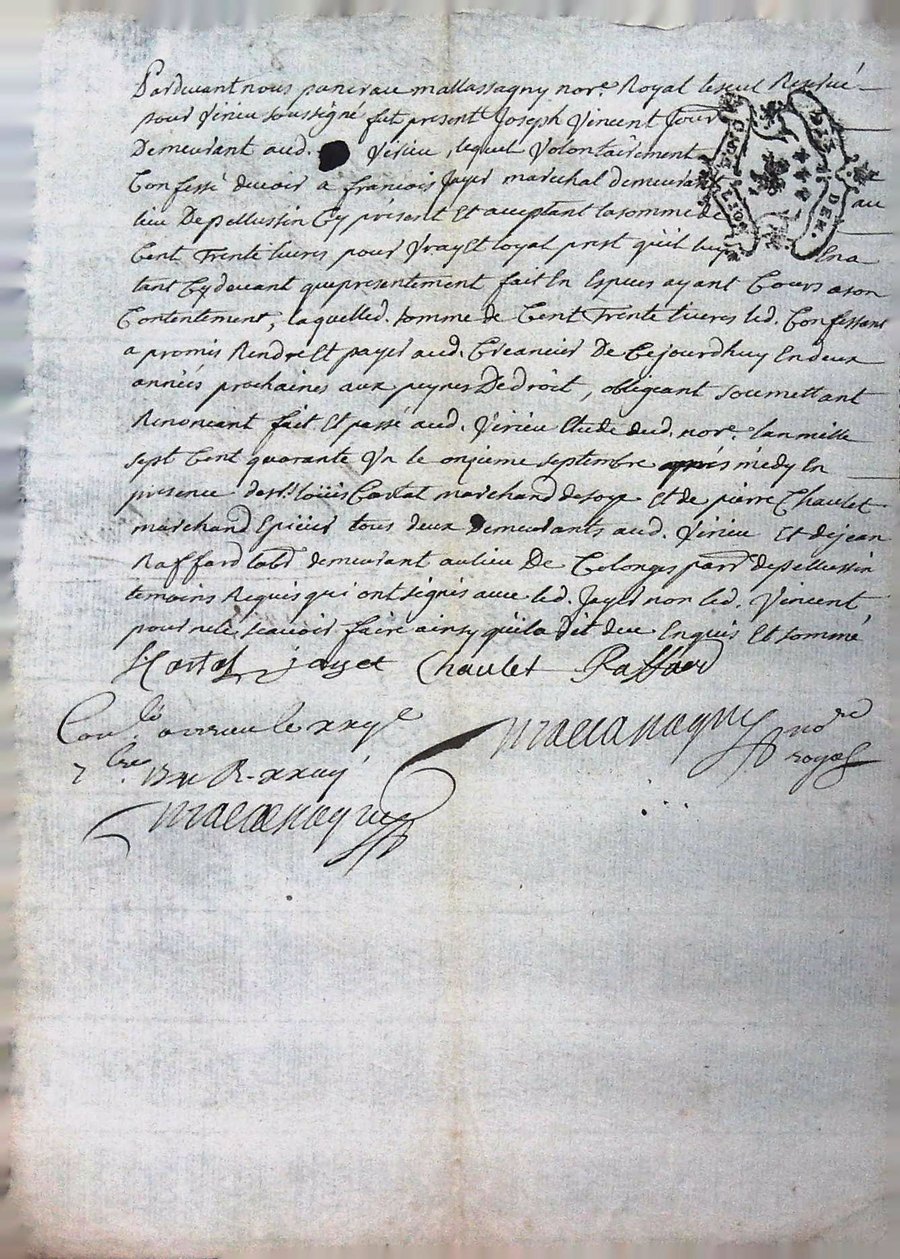 Pardevant nous pancrau mallassagny nore. Royal le seul Reservé
pour Virieu soussigné fut present Joseph Vincent
Demeurant aud. Virieu, lequel Volontairement
Confessé devoir a francois Jayer marechal demeurant au
lieu De pellussin Cy présent Et acceptant la somme de
Cent Trente livres pour Vray Et loyal prest qu'il luy En a
tant Cy devant que presentement fait En Especes ayant Cours a son
Contentement, laquelled. somme de Cent Trente livres led. Confessant
a promis Rendre Et payer aud. Creancier De Cejourdhuy En deux
années prochaines aux peynes De droit, obligeant soumettant
Renoncant fait Et passé aud. Virieu Etude dud. nore. lan mille
sept Cent quarante Un le onzieme septembre après médy En
presence de sr. loüis Cartat marchand de soye Et de pierre Chaulet
marchand Epicier tous deux Demeurants aud. Virieu Et de jean
Raffard labr demeurant au lieu De Colonges parr. de pellussin
temoins Requis qui ont signés avec led. Jayer non led. Vincent
pour ne le scavoir faire ainsy quil a dit de ce Enquis Et sommé
Cartat jayet Chaulet Raffard
Conlé a virieu le
7bre
mallassagny nore
royal
mallassagny
DEN.